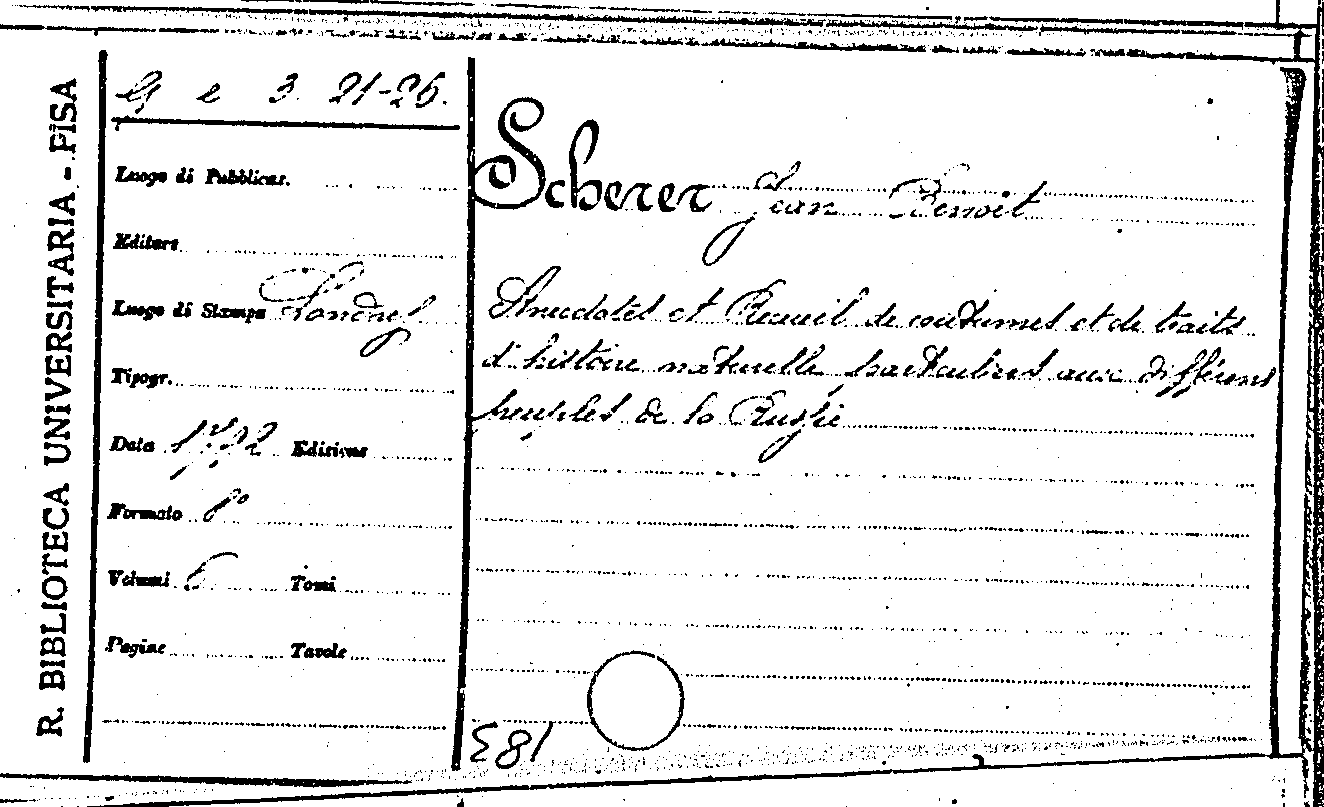 R. BIBLIOTECA UNIVERSITARIA - PISA
G e 3. 21-26.
Luogo di Pubblicaz.
Editore
Luogo di Stampa Londres
Tipogr.
Data 1792 Edizione
Formato 8°
Volumi 6 Tomi
Pagine Tavole
Scherer Jean Benoit
Anecdotes et Recueil de coutumes et de traits
d'histoire naturelle particuliers aux différens
peuples de la Russie
183